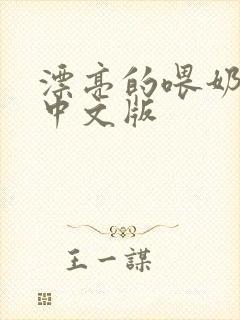 漂亮的喂奶
中文版
王一謀